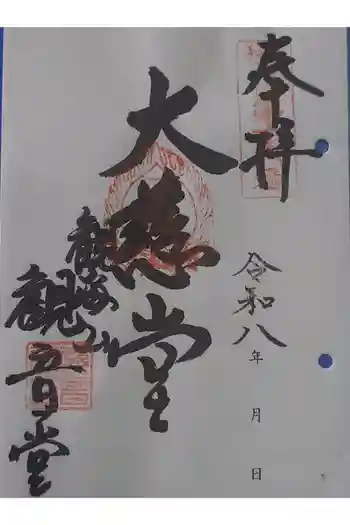 奉拝
令和八年 月 日
大慈堂
観海山
観音堂